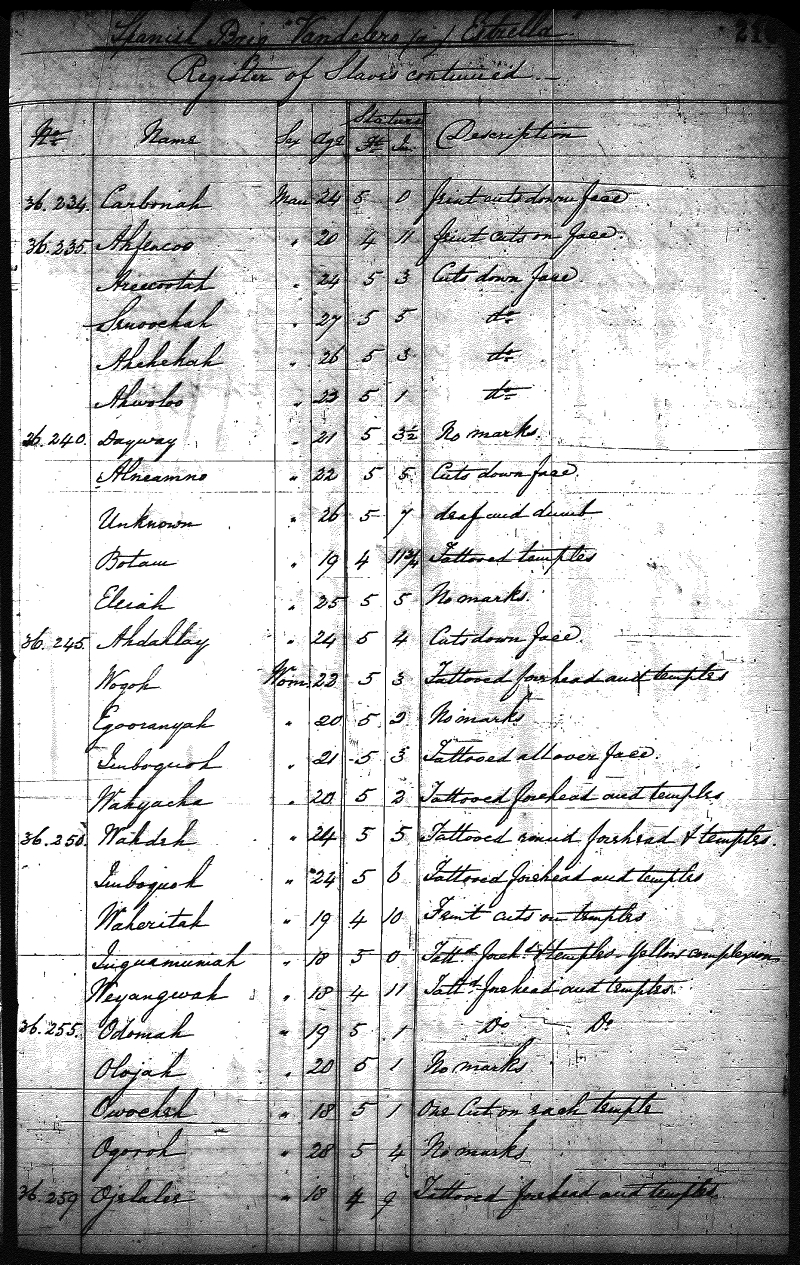 Spanish Brig "Vandolero (a) Estrella"
Register of Slaves continued
No Name Sex Age Stature Description
Ft In
36.234. Carbonah Man 24 5 0 feint cuts down face
36.235. Ahfencoo " 20 4 11 feint cuts on face.
Areecootah " 24 5 3 Cuts down face
" 27 5 5 do
Ahehekah " 26 5 3 do
Ahwoloo " 23 5 1 do
36.240. Dagway " 21 5 3½ No marks.
Ahneamno " 22 5 5 Cuts down face.
Unknown " 26 5 7 deaf and dumb
Botaw " 19 4 11¾ Tattooed temples
Eleiah " 25 5 5 No marks.
36.245. Ahdahlay " 24 5 4 Cuts down face.
Wogoh Wom. 22 5 3 Tattooed forehead and temples
Egooranyah " 20 5 2 No marks
Imboquoh " 21 5 3 Tattooed all over face.
Wahyacha " 20 5 2 Tattooed forehead and temples
36.250. Wahdeh " 24 5 5 Tattooed round forehead & temples.
Imboquoh " 24 5 6 Tattooed forehead and temples
Waheritah " 19 4 10 Feint cuts on temples
Inquamuniah " 18 5 0 Tattd foreh.d & temples. Yellow complexion
Weyangwah " 18 4 11 Tattd forehead and temples.
36.255. Odomah " 19 5 1 Do Do
Olojah " 20 5 1 No marks
Owocheh " 18 5 1 One Cut on each temple
Ogoroh " 28 5 4 No marks
36.259 Ojelaler " 18 4 9 Tattooed forehead and temples